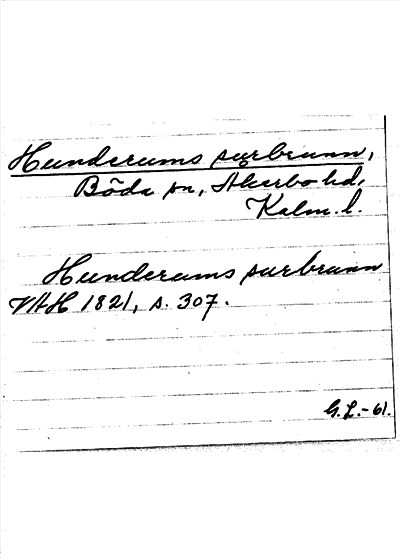 Hunderums surbrunn,
Böda sn, Åkerbo hd,
Kalm. l.
Hunderums surbrunn
VAH 1821, s. 307.
G. L. - 61.